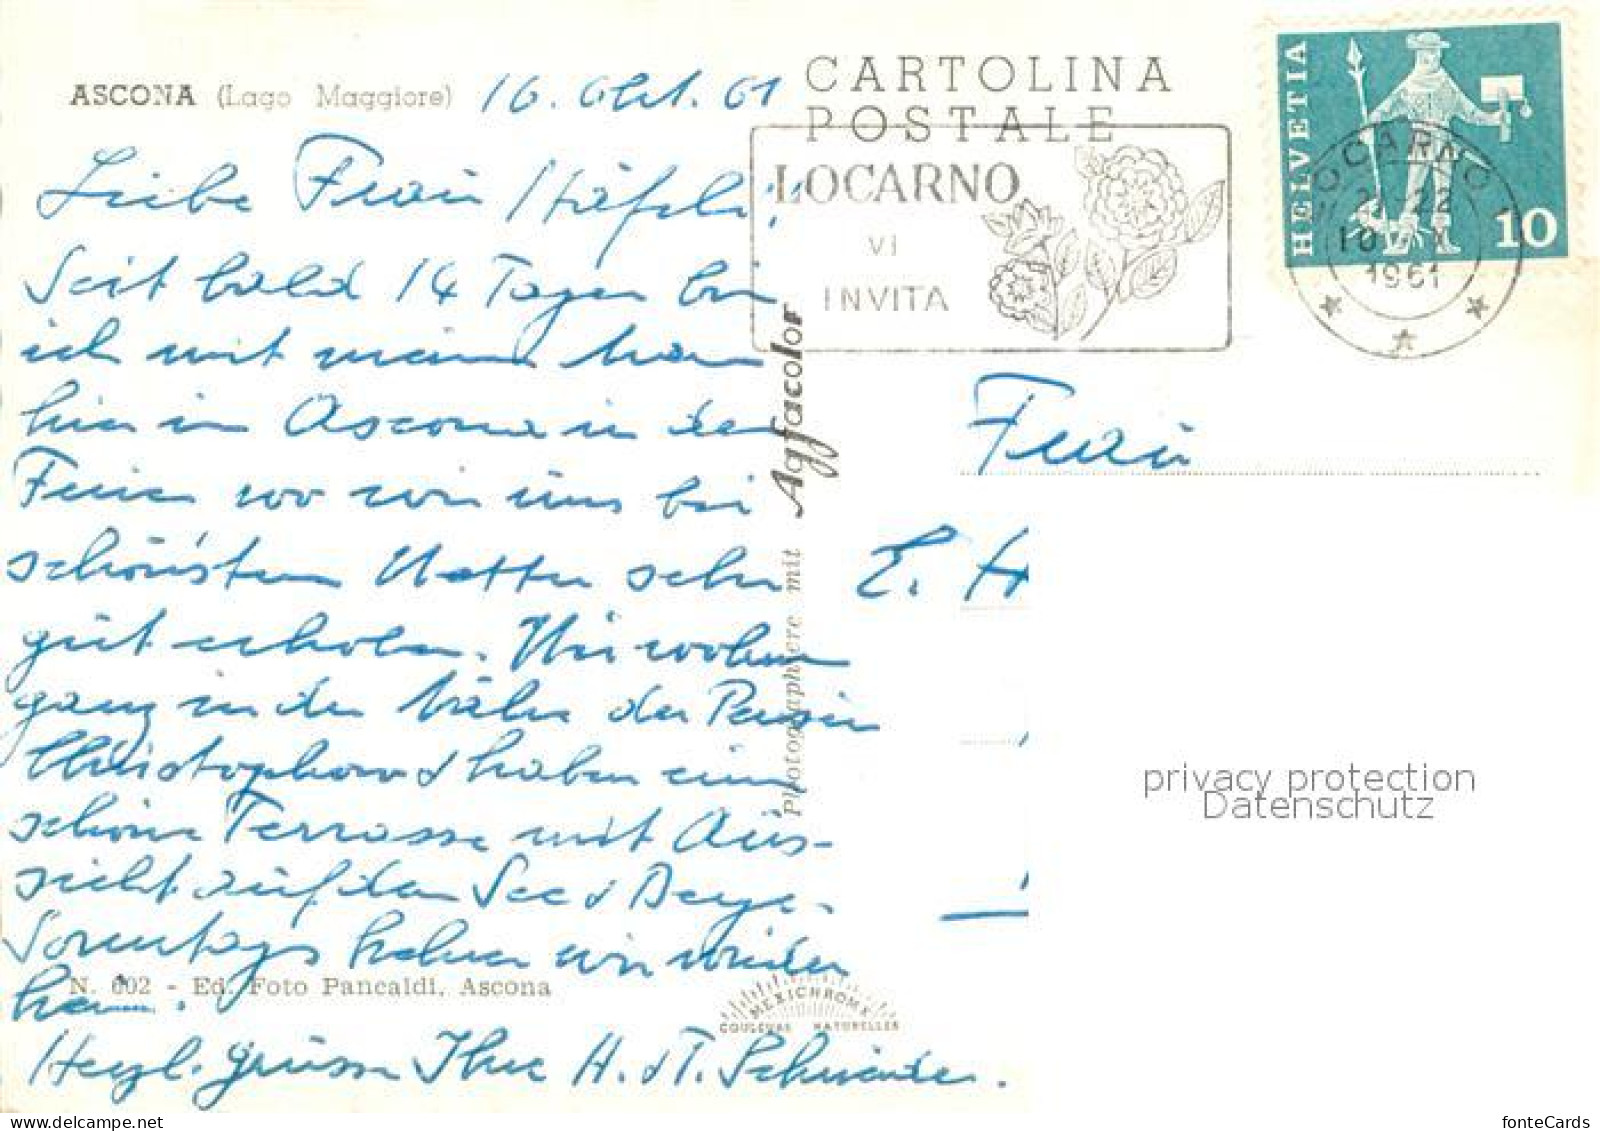 ASCONA (Lago Maggiore) 16. Okt. 61
CARTOLINA
POSTALE
LOCARNO
VI
INVITA
HELVETIA
10
LOCARNO
21-22
10 X
1961
Liebe Frau Häfeli!
Seit bald 14 Tagen bin
ich mit meinem Mann
hier in Ascona in den
Ferien wo wir uns bei
schönstem Wetter sehr
gut erholen. Wir wohnen
ganz in der Nähe der Pension
Christophoro & haben eine
schöne Terrasse mit Aus-
sicht auf den See & Berge.
Sonntags kehren wir wieder
heim.
Herzl. Grüsse Ihre H. & T.
Photographiere mit Agfacolor
N. 602 - Ed. Foto Pancaldi, Ascona
MEXICHROME
COULEURS NATURELLES
Frau
E. H
privacy protection
Datenschutz
fonteCards